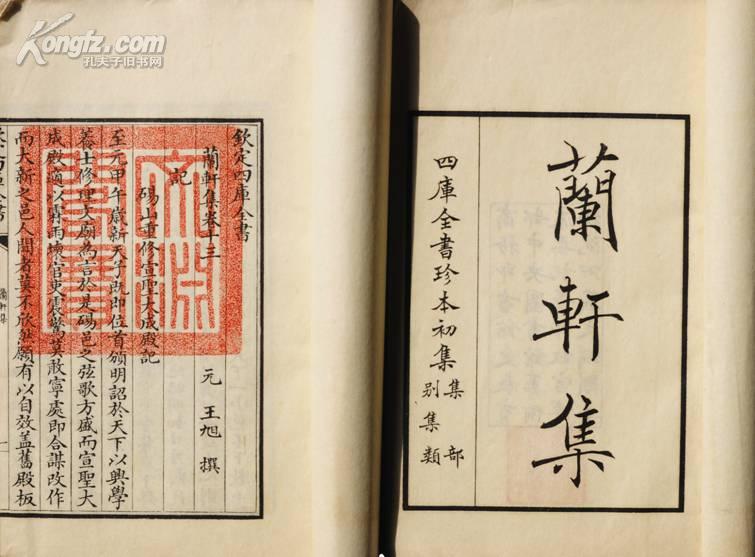 Kongfz.com
孔夫子旧书网
蘭軒集
四庫全書珍本初集
集部
別集類
欽定四庫全書
蘭軒集卷十三
元 王旭 撰
記
碭山重修宣聖大成殿記
至元甲午歲新天子既即位首頒明詔於天下以興學
養士修理文廟為言於是碭邑之弦歌方盛而宣聖大
成殿適以霖雨壞官吏震驚莫敢寧處即合謀改作
而大新之邑人聞者莫不欣然願有以自效蓋舊殿板
蘭軒集